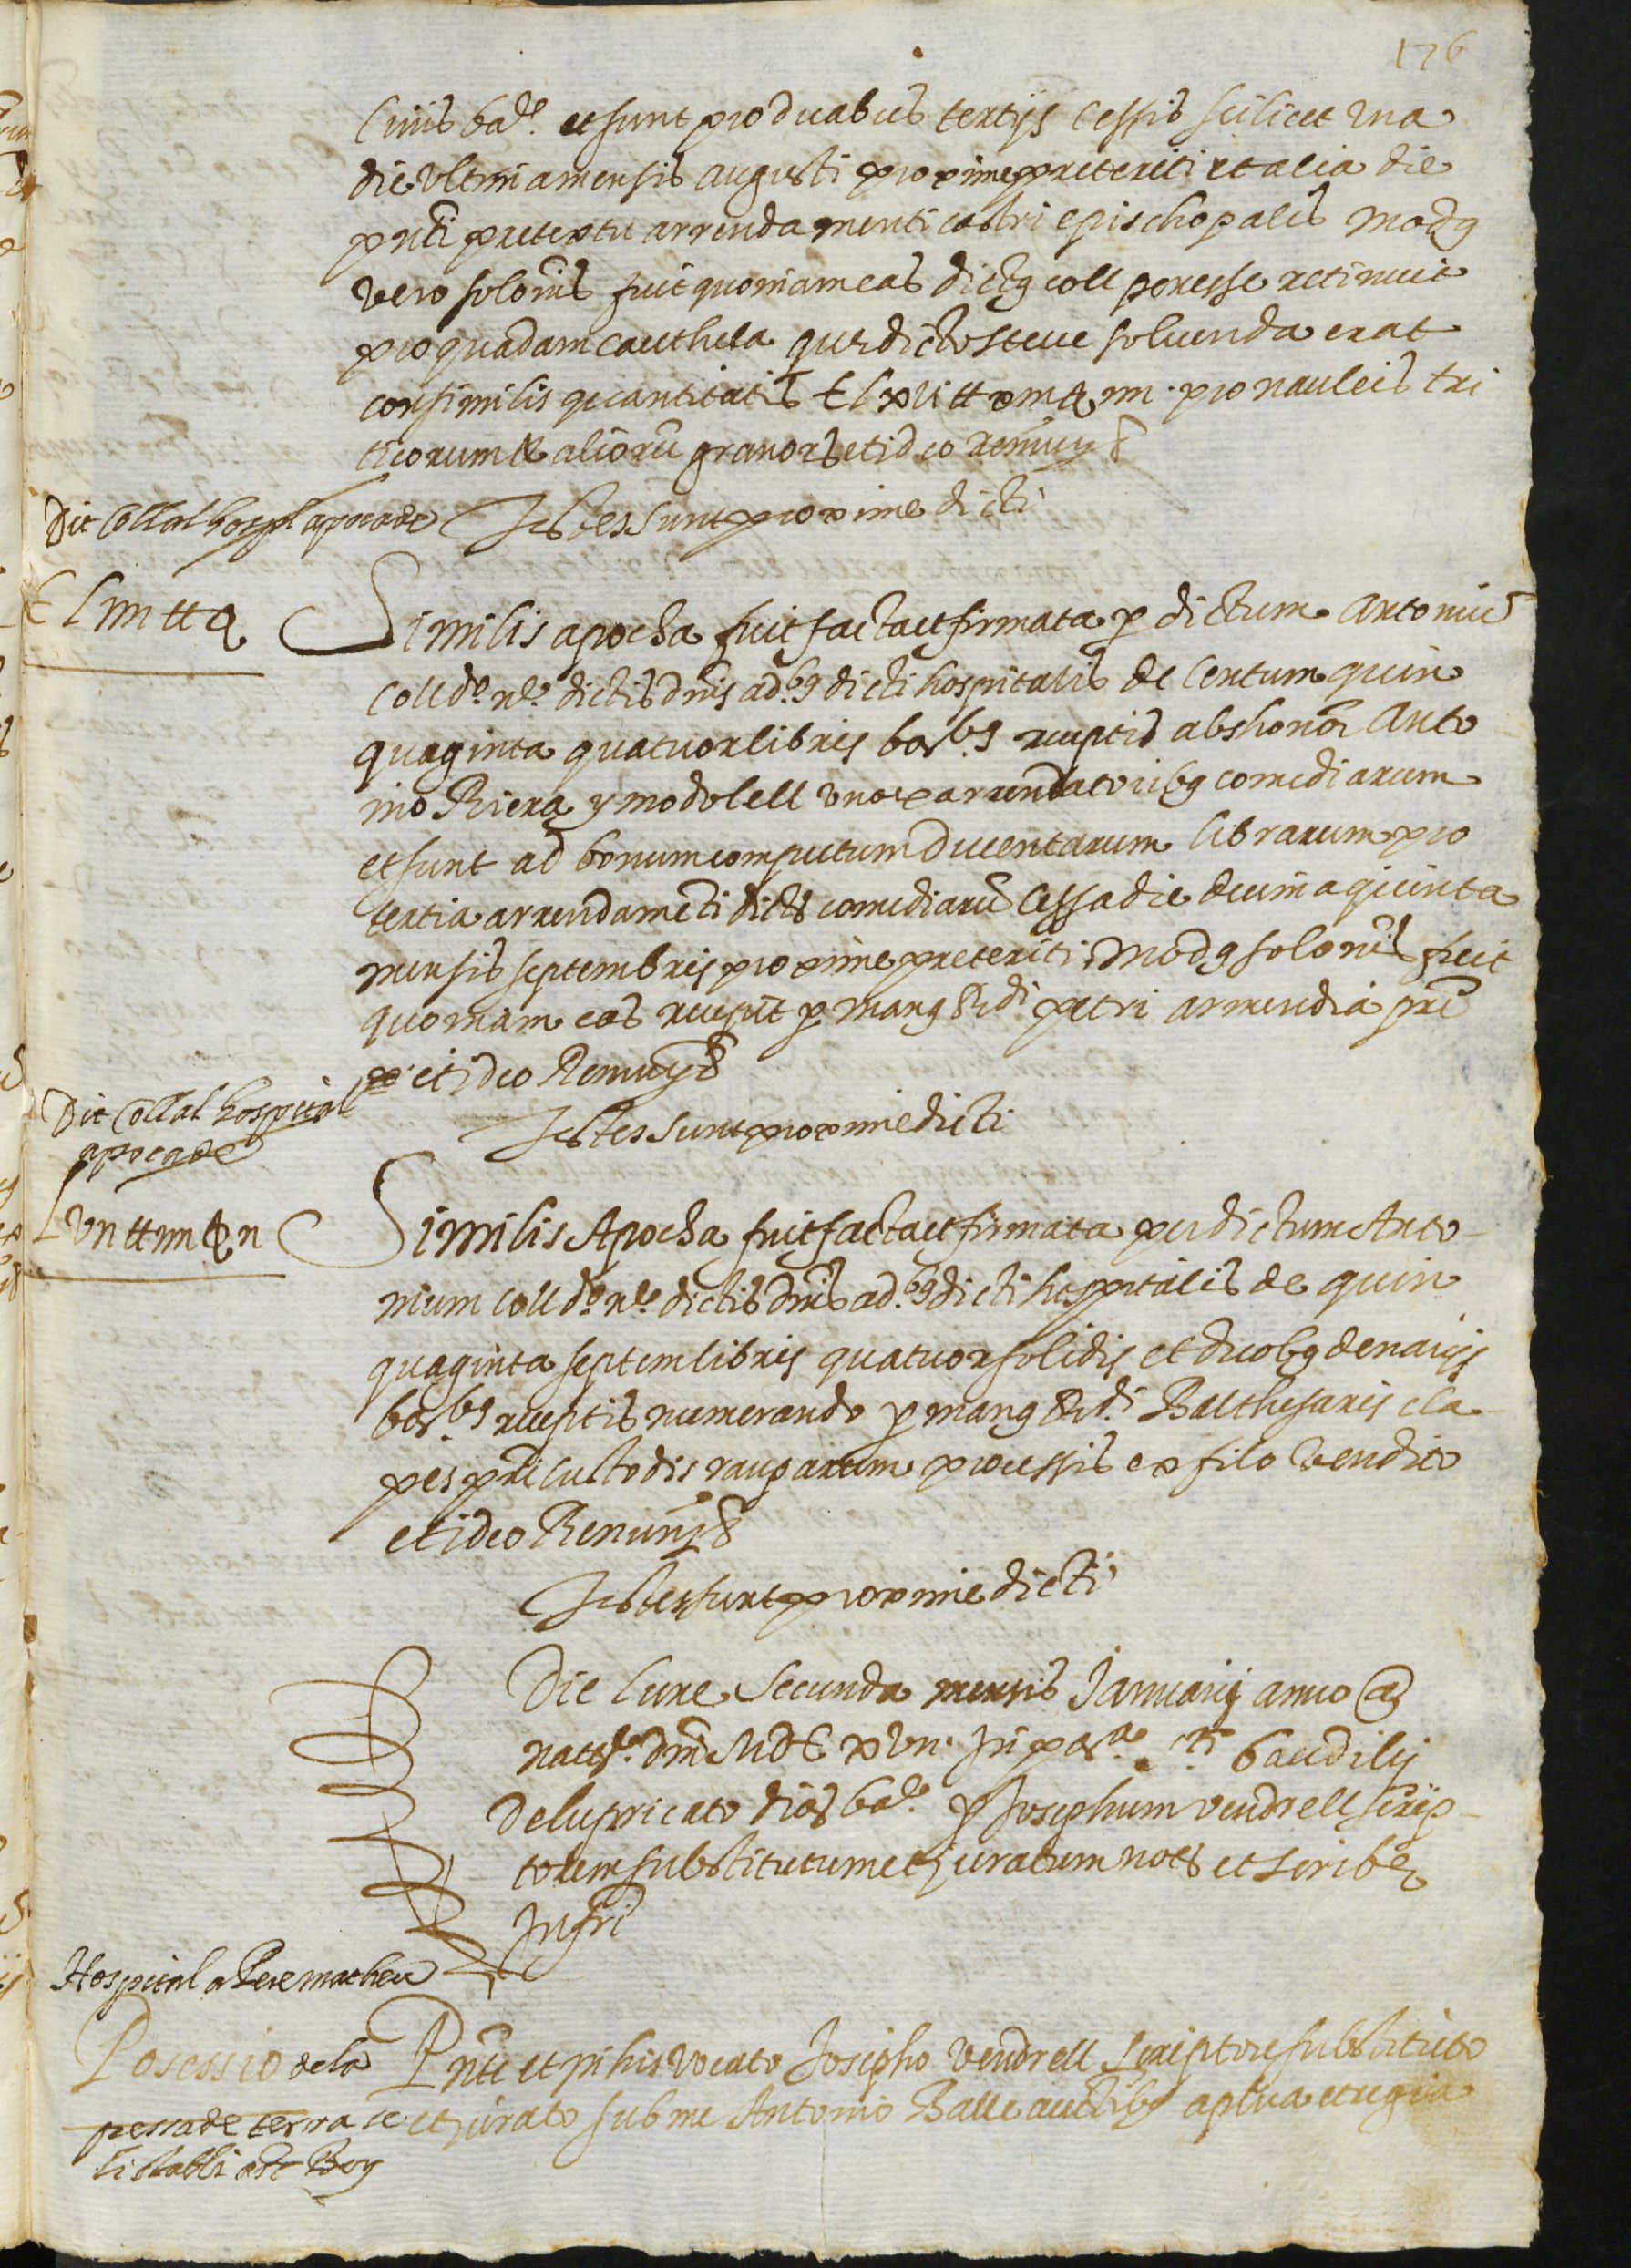 176
Civis bar.e et sunt pro duabus tertijs Cessis scilicet una
die ultima mensis augusti proxime preteriti et alia die
pnti pretextu arrendamenti castri epischopalis Modq
vero solonis fuit quoniam eas dictq coll penes se retinuit
pro quadam cauthela que dicto steve solvenda erat
consimilis quantitatis pro nauleis tri
ticorum & aliorũ granorũ et ideo Renuny &
Dit Coll al hospl apoca de
Testes sunt proxime dicti
C Liiii tt &
Similis apocha fuit facta et firmata p dictum Antoniũ
Coll do. ne. dictis dnis ad.bq dicti hospitalis de Centum quin
quaginta quatuor libris bar.bq receptis ab honor Anto
nio Riera y modolell uno ex arrendatoribq comediarum
et sunt ad bonum computum Ducentarum librarum pro
tertia arrendamẽti dicts comediarũ Cessa die decima quinta
mensis septembris proxime preteriti Modq solonis fuit
quoniam eas recepit p manq Rdi petri armendia pre
et ideo Renuny &
Dit Coll al hospital
apoca de
Testes sunt proxime dicti
Lvii tt iiii & ii
Similis Apocha fuit facta et firmata per dictum Anto-
nium coll do. ne. dictis dnis ad.bq dicti hospitalis de quin
quaginta septem libris quatuor solidis et duobq denarijs
bar.bq receptis numerando p manq Rdi. Balthesaris cla
pes pri custodis rauparum processis ex filo vendito
et ideo Renuny &
Testes sunt proxime dicti
Die Lune Secunda mensis Januarij anno a
natte. dni MDCxvii. In par.a Sti baudilij
de lupricato dios bar.e p Josephum vendrell scrip-
torem substitutum et juratum nots et scribe
Infri
Hospital a Pere matheu
Posessio de la
pessa de terra se
li stabli a St Boy
Pnte et p his vocato Josepho Vendrell scriptore substituto
et jurato sub me Antonio Batle auctibq aplica et regia